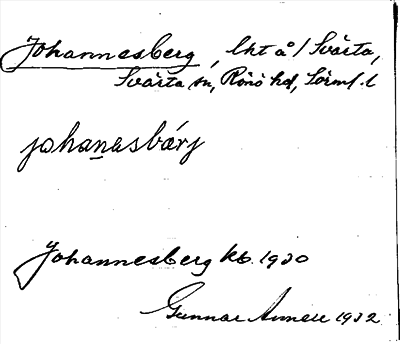 Johannesberg, lht å / Svärta,
Svärta sn, Rönö hd, Sörml. l
johanasbärj
Johannesberg kb. 1930
Gunnar Annell 1932